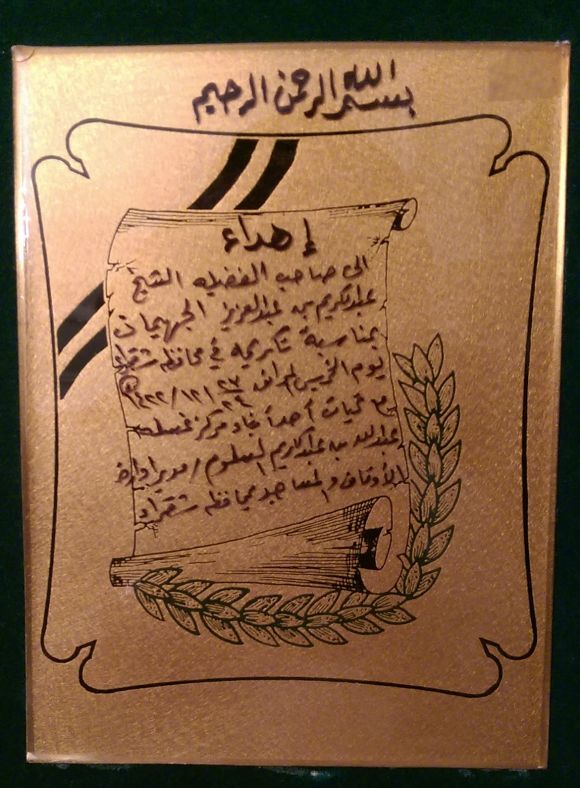 بسم الله الرحمن الرحيم
إهداء
الى صاحب الفضيله الشيخ
عبدالكريم بن عبدالعزيز الجهيمان
بمناسبة تكريمه في محافظه شقراء
يوم الخميس الموافق ٢٣/١٢/١٤٢٢
مع تحيات أحد أبناء مركز غسله
عبدالله بن عبدالكريم السلوم / مدير ادارة
الأوقاف والمساجد بمحافظه شقراء